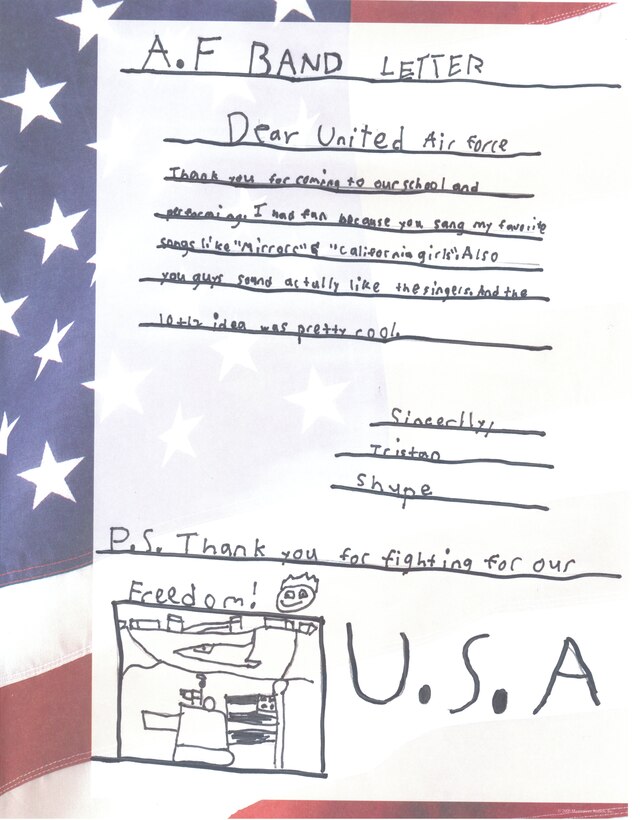 A.F BAND LETTER
Dear United Air force
Thank you for coming to our school and
pereforming. I had fun because you sang my favorite
songs like "Mirrors" & "California girls". Also
you guys sound actully like the singers. And the
10+12 idea was pretty cool.
Sincerlly,
Tristan
Shype
P.S. Thank you for fighting for our
Freedom!
U.S.A